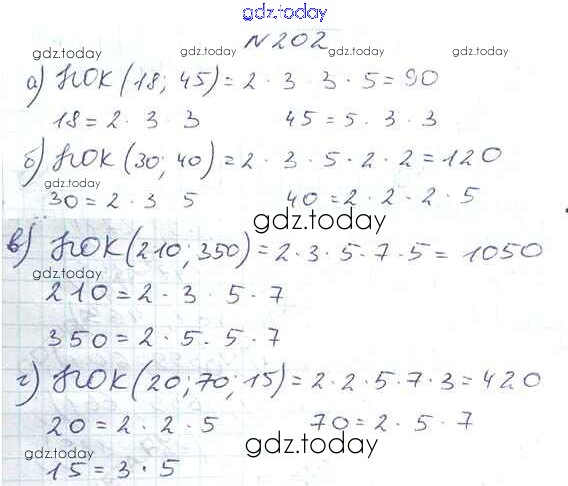 gdz.today
№202
gdz.today gdz.today gdz.today
а) НОК (18; 45) = 2 · 3 3 · 5 = 90
18 = 2 · 3 3 45 = 5 · 3 · 3
gdz.today gdz.today gdz.today
б) НОК (30; 40) = 2 · 3 · 5 · 2 · 2 = 120
30 = 2 · 3 5 40 = 2 · 2 · 2 · 5
gdz.today gdz.today
в) НОК (210; 350) = 2 · 3 · 5 · 7 · 5 = 1050
gdz.today
210 = 2 · 3 · 5 · 7
gdz.today
350 = 2 · 5 · 5 · 7
г) НОК (20; 70; 15) = 2 · 2 · 5 · 7 · 3 = 420
gdz.today gdz.today
20 = 2 · 2 · 5 70 = 2 · 5 · 7
gdz.today
15 = 3 · 5